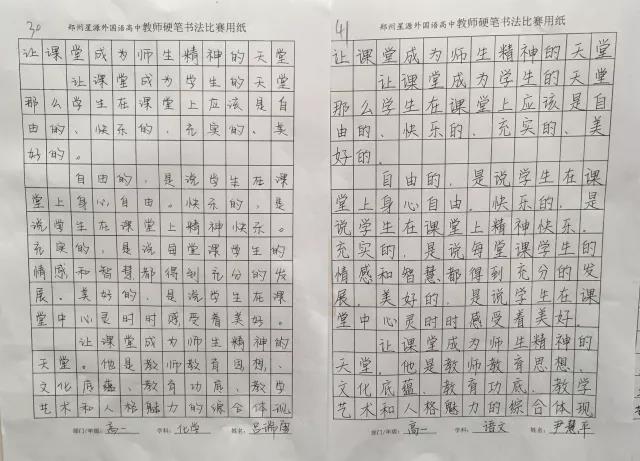 30
郑州星源外国语高中教师硬笔书法比赛用纸
让课堂成为师生精神的天堂
让课堂成为学生的天堂
那么学生在课堂上应该是自
由的、快乐的、充实的、美
好的。
自由的,是说学生在课
堂上身心自由。快乐的,是
说学生在课堂上精神快乐。
充实的,是说每堂课学生的
情感和智慧都得到充分的发
展。美好的,是说学生在课
堂中心灵时时感受着美好。
让课堂成为师生精神的
天堂。他是教师教育思想、
文化底蕴、教育功底、教学
艺术和人格魅力的综合体现
部门/年级:高一 学科:化学 姓名:吕瑞国
41
郑州星源外国语高中教师硬笔书法比赛用纸
让课堂成为师生精神的天堂
让课堂成为学生的天堂
那么学生在课堂上应该是自
由的、快乐的、充实的、美
好的.
自由的.是说学生在课
堂上身心自由.快乐的.是
说学生在课堂上精神快乐.
充实的.是说每堂课学生的
情感和智慧都得到充分的发
展.美好的.是说学生在课
堂中心灵时时感受着美好.
让课堂成为师生精神的
天堂.他是教师教育思想、
文化底蕴、教育功底、教学
艺术和人格魅力的综合体现
部门/年级:高一 学科:语文 姓名:尹慧平